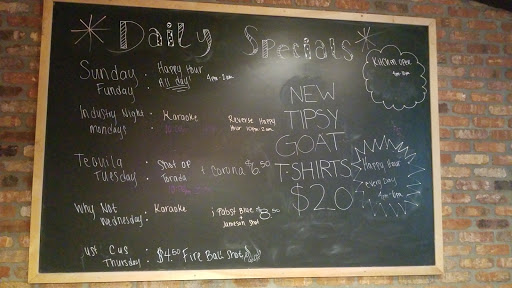 Daily Specials
Sunday Funday : Happy Hour All day! 4pm-2am
Industry Night Mondays : Karaoke Reverse Happy Hour 10pm-2am
Tequila Tuesday : Shot of Torada + Corona $6.50
Why Not Wednesday : Karaoke ; Pabst Blue + Jameson Shot $8.50
Just Cus Thursday : $4.50 Fire Ball Shot
NEW
TIPSY
GOAT
T-SHIRTS
$20
Kitchen Open
Happy Hour
Every Day